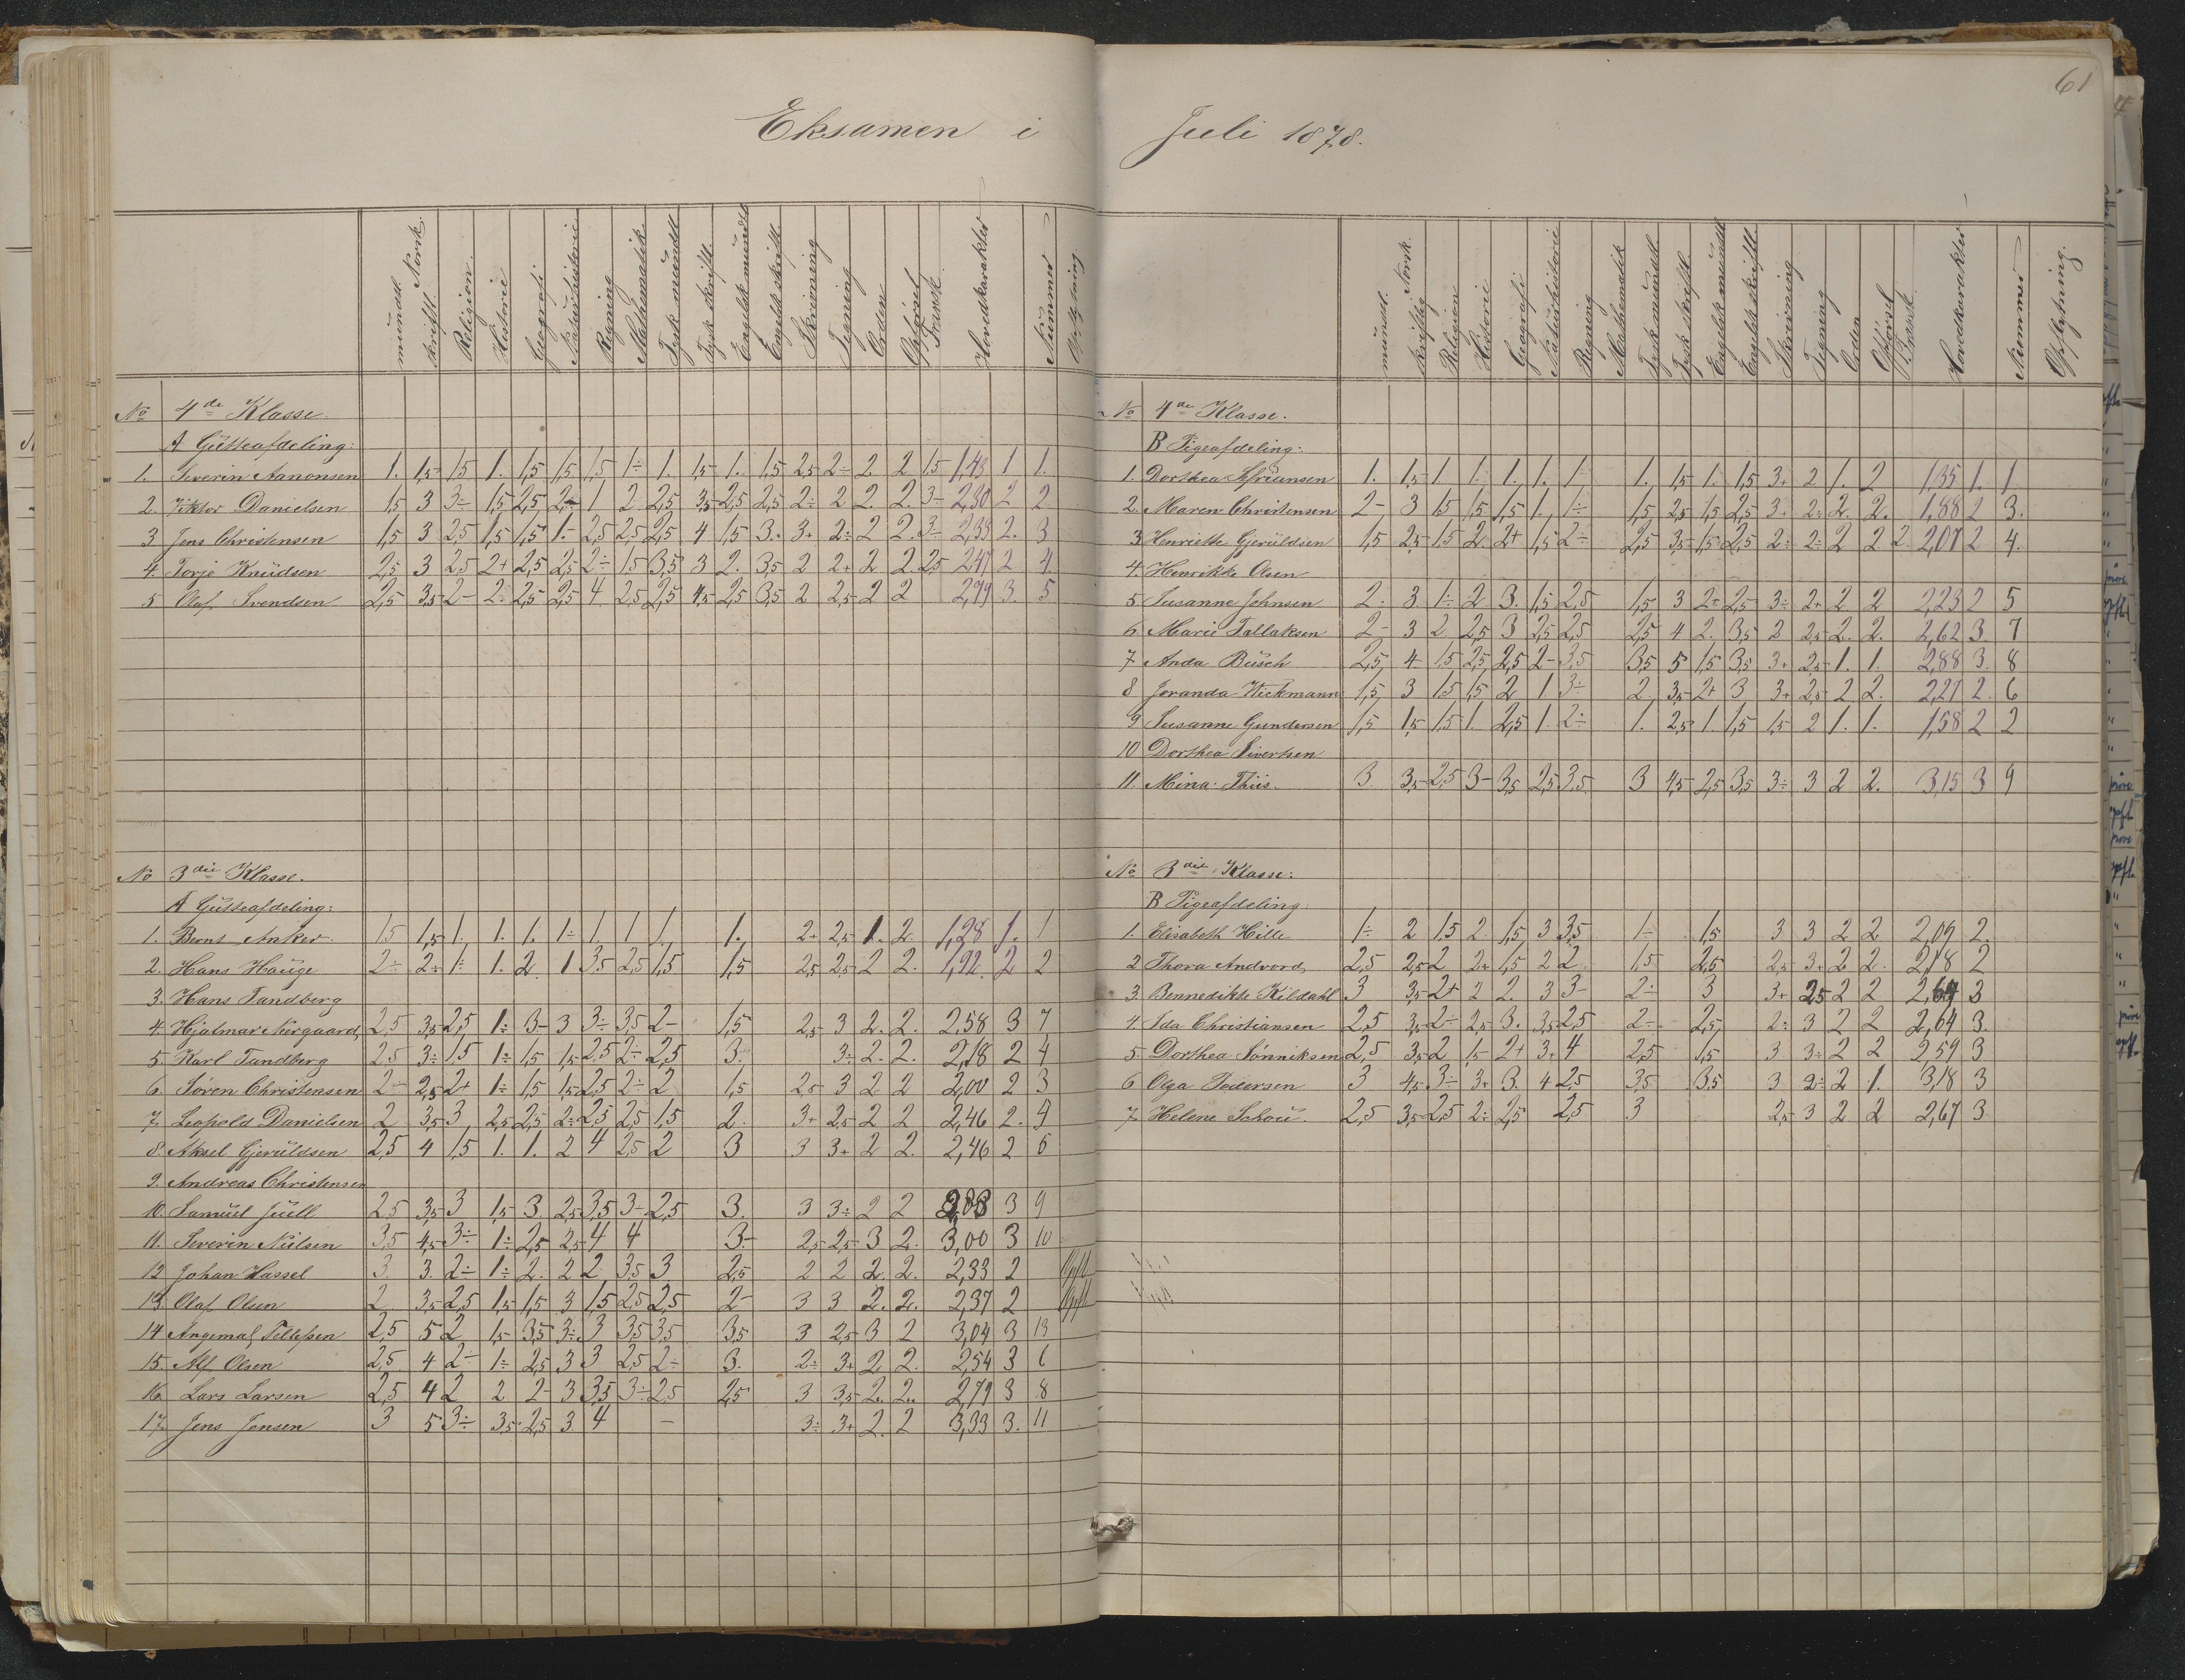 61
Eksamen i Juli 1878.
mundtl. Norsk. skriftl. Religion. Historie Geografi Naturhistorie Regning Mathematik Tysk mundtl Tysk skriftl. Engelsk mundtl Engelsk skriftl. Skrivning Tegning Orden Opförsel Fransk. Hovedkarakter Nummer
No 4de Klasse.
A Gutteafdeling:
1. Severin Aanonsen 1. 1,5- 1,5 1. 1,5 1,5 1,5 1÷ 1. 1,5- 1. 1,5 2,5 2÷ 2. 2 1,5 1,43 1 1.
2. Viktor Danielsen 1,5 3 3÷ 1,5 2,5 2÷ 1 2 2,5 3,5 2,5 2,5 2÷ 2 2. 2. 3- 2,30 2 2
3 Jens Christensen 1,5 3 2,5 1,5 1,5 1- 2,5 2,5 2,5 4 1,5 3. 3+ 2÷ 2 2. 3- 2,33 2. 3
4. Torje Knudsen 2,5 3 2,5 2+ 2,5 2,5 2÷ 1,5 3,5 3 2. 3,5 2 2+ 2 2. 2,5 2,47 2 4.
5 Olaf Svendsen 2,5 3,5 2- 2. 2,5 2,5 4 2,5 2,5 4,5 2,5 3,5 2 2,5 2 2 2,79 3. 5
No 3die Klasse.
A Gutteafdeling:
1. Bernt Anker. 1,5 1,5 1. 1. 1. 1÷ 1. 1 1. 1. 2+ 2,5 1. 2. 1,28 1. 1
2. Hans Hauge 2÷ 2÷ 1÷ 1. 2. 1 3,5 2,5 1,5 1,5 2,5 2,5 2 2. 1,92. 2 2
3. Hans Tandberg
4. Hjalmar Nørgaard, 2,5 3,5 2,5 1÷ 3- 3 3÷ 3,5 2- 1,5 2,5 3 2. 2. 2,58 3 7
5. Karl Tandberg 2,5 3÷ 1,5 1÷ 1,5 1,5 2,5 2÷ 2,5 3. 3÷ 2. 2. 2,18 2 4
6. Søren Christensen 2- 2,5 2+ 1÷ 1,5 1,5 2,5 2÷ 2 1,5 2,5 3 2 2 2,00 2 3
7. Leopold Danielsen 2 3,5 3 2,5 2,5 2÷ 2,5 2,5 1,5 2. 3+ 2,5 2 2 2,46 2.
8. Aksel Gjeruldsen 2,5 4 1,5 1. 1. 2 4 2,5 2 3 3 3+ 2 2. 2,46 2
9. Andreas Christensen
10. Samuel Juell 2,5 3,5 3 1,5 3. 2,5 3,5 3÷ 2,5 3. 3 3÷ 2 2 3 9
11. Severin Nielsen 3,5 4,5 3÷ 1÷ 2,5 2,5 4 4 3÷ 2,5 2,5 3 2. 3,00 3 10
12 Johan Hassel 3. 3. 2÷ 1÷ 2. 2 2 3,5 3 2,5 2 2 2. 2. 2,33 2 Opfl
13 Olaf Olsen 2 3,5 2,5 1,5 1,5 3 1,5 2,5 2,5 2- 3 3 2. 2. 2,37 2 Opfl
14 Angemal Tellefsen 2,5 5 2 1,5 3,5 3÷ 3 3,5 3,5 3,5 3 2,5 3 2 3,04 3 13
15. Alf Olsen 2,5 4 2÷ 1÷ 2,5 3 3 2,5 2÷ 3. 2÷ 3+ 2 2. 2,54 3 6
16. Lars Larsen 2,5 4 2 2 2- 3 3,5 3÷ 2,5 2,5 3 3,5 2. 2. 2,79 3 8
17. Jens Jensen 3 5 3÷ 3,5 2,5 3 4 - 3÷ 3+ 2. 2 3,33 3. 11
mundtl. Norsk. skriftlig Religion Historie Geografi Naturhistorie Regning Mathematik Tysk mundtl. Tysk skriftl. Engelsk mundtl Engelsk skriftl. Skrivning Tegning Orden Opförsel Fransk. Hovedkarakter Nummer Opflytning.
No 4de Klasse.
B Pigeafdeling:
1. Dorthea 1. 1,5- 1 1. 1. 1. 1- 1. 1,5 1. 1,5 3+ 2 1. 2 1,35 1. 1
2. Maren Christensen 2- 3 1,5 1,5 1,5 1. 1÷ 1,5 2,5 1,5 2,5 3+ 2÷ 2. 2. 1,88 2 3.
3 Henriette Gjeruldsen 1,5 2,5- 1,5 2. 2+ 1,5 2÷ 2,5 3,5- 1,5 2,5 2÷ 2÷ 2 2 2 2,07 2 4.
4. Henrikke Olsen
5. Susanne Johnsen 2. 3 1÷ 2 3. 1,5 2,5 1,5 3 2+ 2,5 3÷ 2+ 2 2 2,23 2 5
6. Marie Tallaksen 2- 3 2 2,5 3 2,5 2,5 2,5 4 2. 3,5 2 2,5 2. 2. 2,62 3. 7
7. Anda Busch 2,5 4 1,5 2,5 2,5 2- 3,5 3,5 5 1,5 3,5 3+ 2,5 1. 1. 2,88 3. 8
8 Joranda Wickmann 1,5 3 1,5 1,5 2 1 3÷ 2. 3,5 2+ 3 3+ 2,5 2 2. 2,27 2. 6
9 Susanne Gundersen 1,5 1,5 1,5 1 2,5 1. 2÷ 1. 2,5 1. 1,5 1,5 2 1. 1. 1,58 2 2
10 Dorthea Sivertsen
11. Mina Thiis. 3. 3,5 2,5 3- 3,5 2,5 3,5 3 4,5 2,5 3,5 3÷ 3 2 2. 3,15 3 9
No 3die Klasse:
B Pigeafdeling
1. Elisabeth Hille 1÷ 2 1,5 2. 1,5 3 3,5 1- 1,5 3 3 2 2 2,09 2.
2 Thora Andvord, 2,5 2,5 2 2+ 1,5 2 2 1,5 2,5 2,5 3+ 2 2. 2,18 2
3 Bennedikte Kildahl 3 3,5 2+ 2 2. 3 3- 2÷ 3 3+ 2,5 2 2 3
4. Ida Christiansen 2,5 3,5 2÷ 2,5 3. 3,5 2,5 2- 2,5 2÷ 3 2 2 2,64 3.
5. Dorthea Sønniksen 2,5 3,5 2 1,5 2+ 3+ 4 2,5 1,5 3 3÷ 2 2 2,59 3
6 Olga Pedersen 3 4,5 3÷ 3+ 3. 4 2,5 3,5 3,5 3 2÷ 2 1. 3,18 3
7 Helene Schou. 2,5 3,5 2,5 2÷ 2,5 2,5 3 2,5 3 2 2 2,67 3.